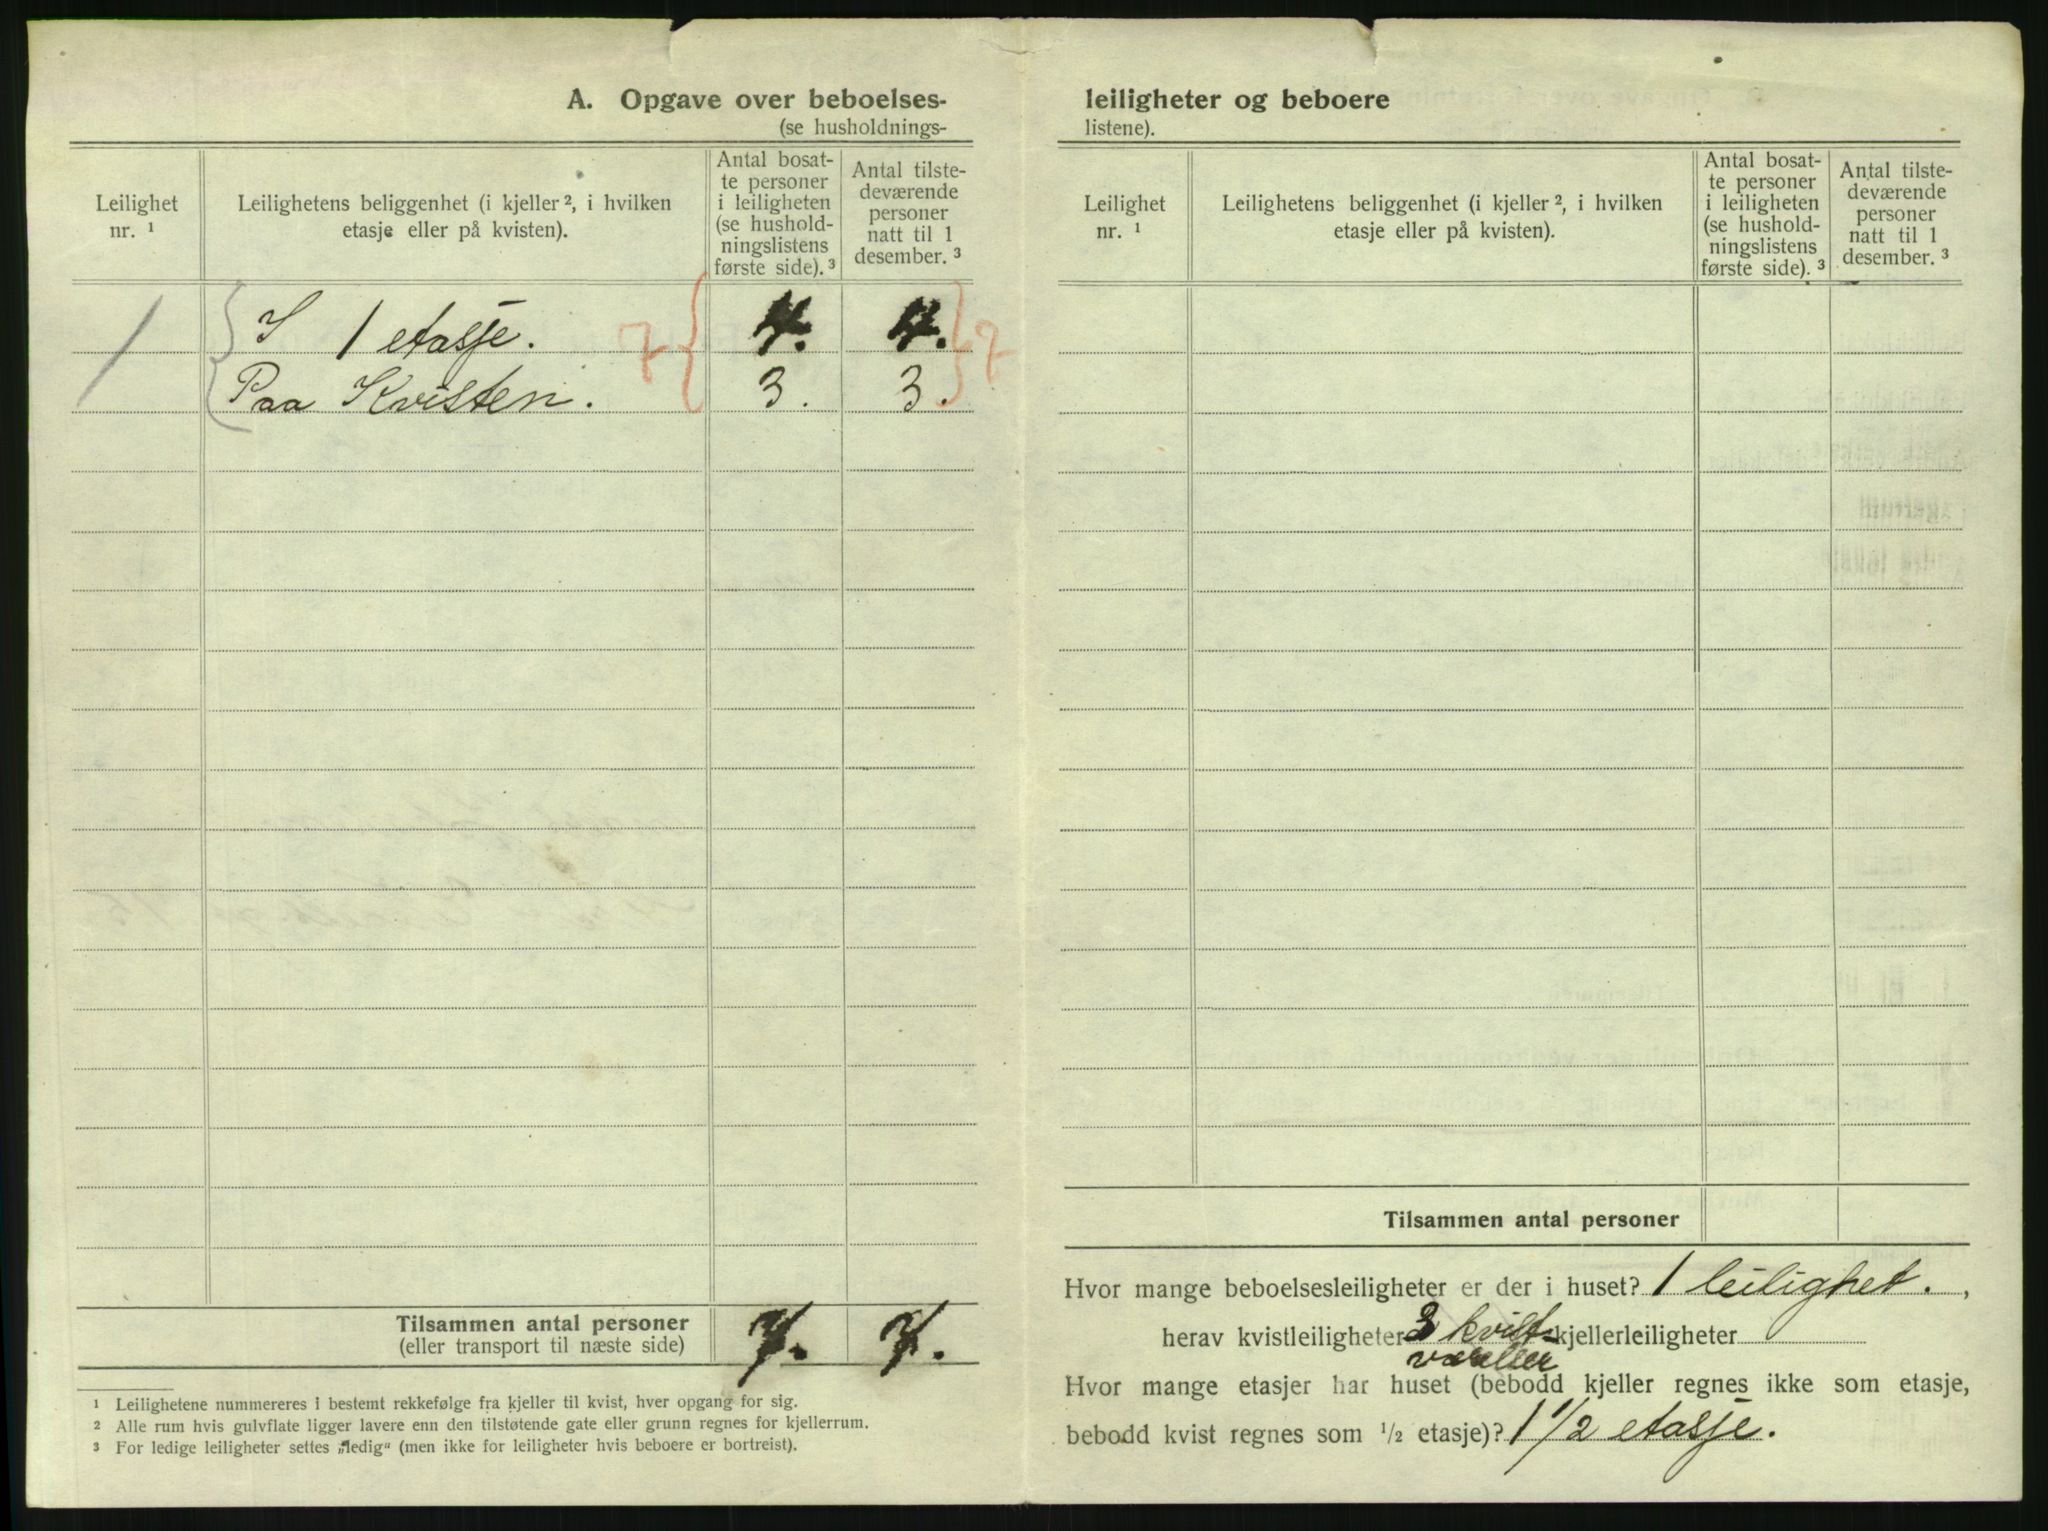 A. Opgave over beboelses-
(se husholdnings-
Leilighet
nr. ¹
Leilighetens beliggenhet (i kjeller ², i hvilken
etasje eller på kvisten).
Antal bosat-
te personer
i leiligheten
(se hushold-
ningslistens
første side). ³
Antal tilste-
deværende
personer
natt til 1
desember. ³
1
I 1 etasje. 7 4. 4. 7
Paa Kvisten. 3. 3.
Tilsammen antal personer
(eller transport til næste side)
7. 7.
¹ Leilighetene nummereres i bestemt rekkefølge fra kjeller til kvist, hver opgang for sig.
² Alle rum hvis gulvflate ligger lavere enn den tilstøtende gate eller grunn regnes for kjellerrum.
³ For ledige leiligheter settes „ledig“ (men ikke for leiligheter hvis beboere er bortreist).
leiligheter og beboere
listene).
Leilighet
nr. ¹
Leilighetens beliggenhet (i kjeller ², i hvilken
etasje eller på kvisten).
Antal bosat-
te personer
i leiligheten
(se hushold-
ningslistens
første side). ³
Antal tilste-
deværende
personer
natt til 1
desember. ³
Tilsammen antal personer
Hvor mange beboelsesleiligheter er der i huset? 1 leilighet. ,
herav kvistleiligheter 3 kvist kjellerleiligheter
Hvor mange etasjer har huset (bebodd kjeller regnes ikke som etasje,
bebodd kvist regnes som ½ etasje)? 1 1/2 etasje.